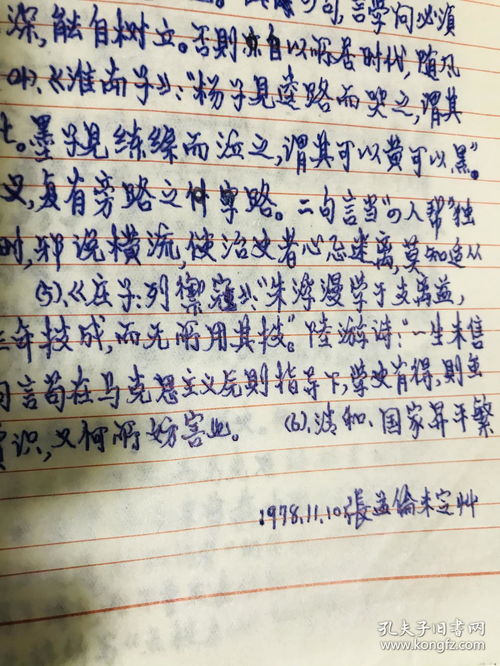 句,言学问必须
深,能自树立。否则亦自以所居时代,随风
(4)、《淮南子》:“杨子见逵路而哭之,谓其
。墨子见练丝而泣之,谓其可以黄可以黑。”
又,复有旁路之什字路。二句言当“四人帮”独
时,邪说横流,使治史者心志迷离,莫知适从
(5)、《庄子·列御寇》:“朱泙漫学于支离益,
三年技成,而无所用其技。”陆游诗:“一生未售
句言苟在马克思主义原则指导下,学史有得,则虽
识,又何所妨害也。 (6)、清和、国家昇平繁
1978.11.10.張孟倫未定艸
孔夫子旧书网
www.kongfz.com